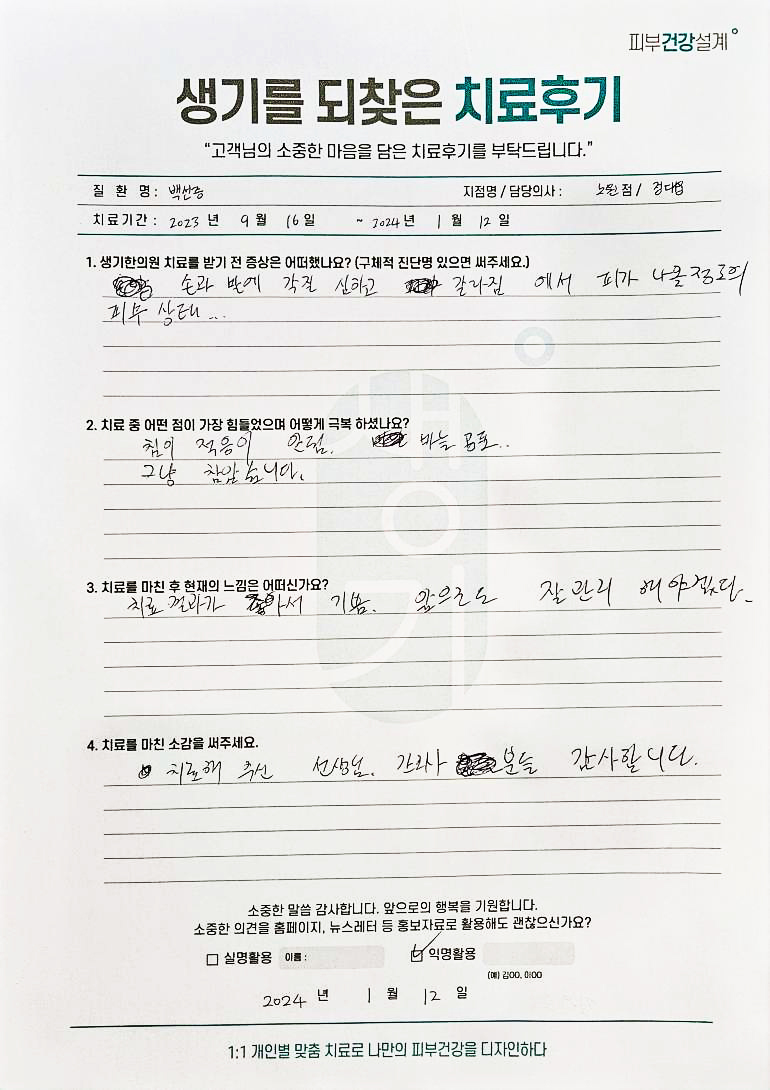 피부건강설계
생기를 되찾은 치료후기
“고객님의 소중한 마음을 담은 치료후기를 부탁드립니다.”
질 환 명 : 백선증 지점명 / 담당의사 : 노원 점 / 정대웅
치료기간 : 2023 년 9 월 16 일 ~ 2024 년 1 월 12 일
1. 생기한의원 치료를 받기 전 증상은 어떠했나요? (구체적 진단명 있으면 써주세요.)
손과 발에 각질 심하고 갈라짐 에서 피가 나올정도의
피부 상태...
2. 치료 중 어떤 점이 가장 힘들었으며 어떻게 극복 하셨나요?
침이 적응이 안됨. 바늘 공포..
그냥 참았습니다.
3. 치료를 마친 후 현재의 느낌은 어떠신가요?
치료 결과가 좋아서 기쁨. 앞으로도 잘 관리 해야겠다.
4. 치료를 마친 소감을 써주세요.
치료해 주신 선생님. 간호사 분들 감사합니다.
생기
소중한 말씀 감사합니다. 앞으로의 행복을 기원합니다.
소중한 의견을 홈페이지, 뉴스레터 등 홍보자료로 활용해도 괜찮으신가요?
실명활용 이름 : 익명활용
(예) 김OO, 이OO
2024 년 1 월 12 일
1:1 개인별 맞춤 치료로 나만의 피부건강을 디자인하다